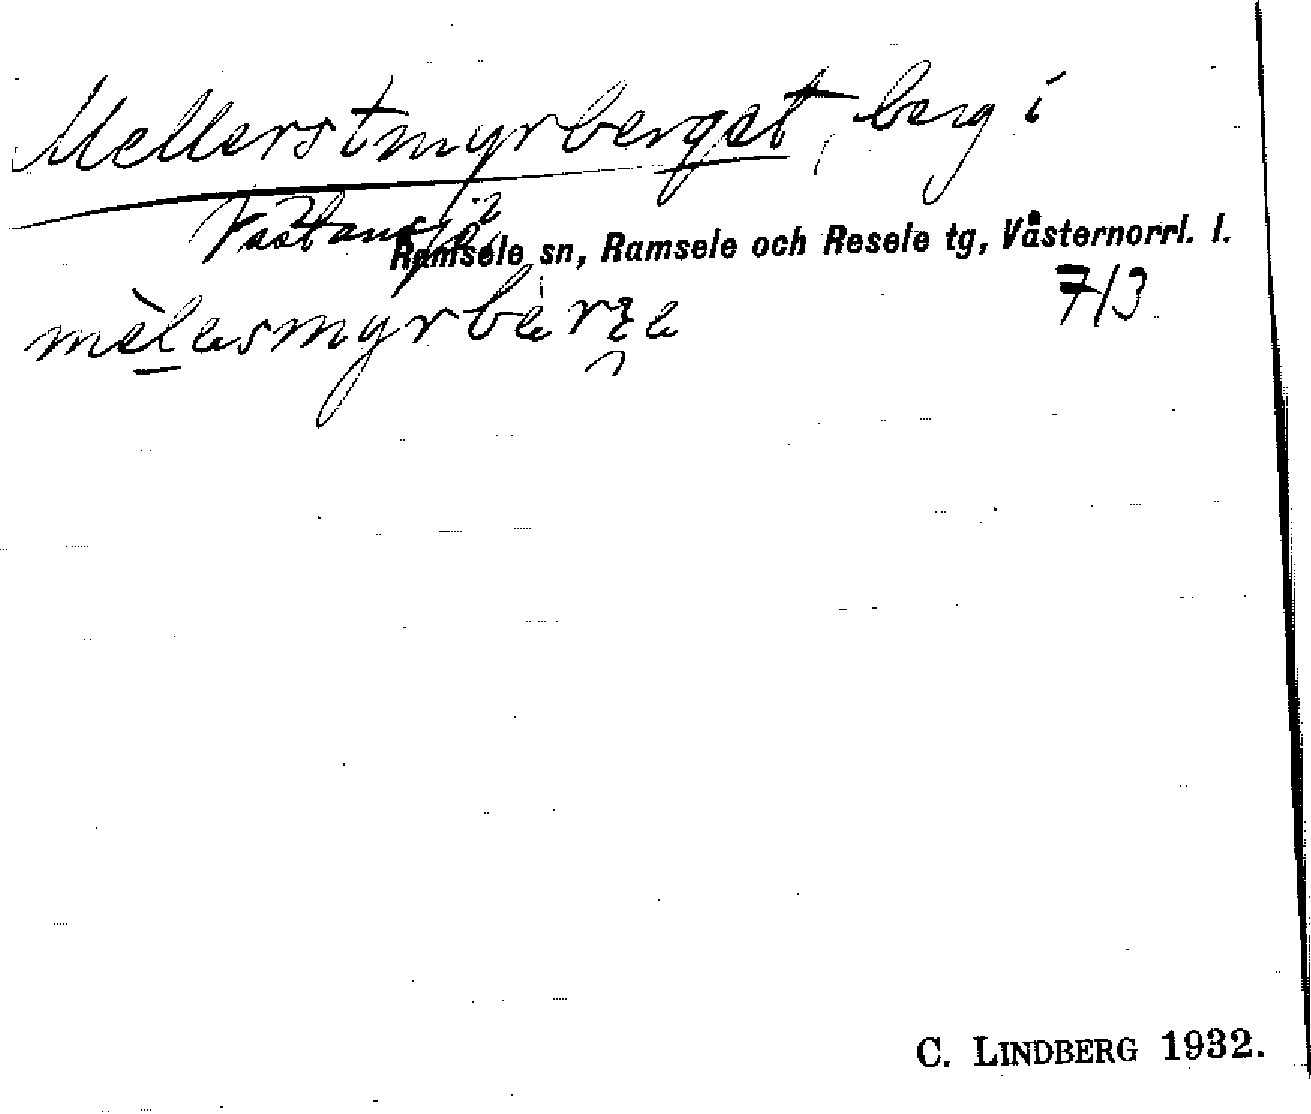 Mellerstmyrberget, berg i
Västansjö, Ramsele sn, Ramsele och Resele tg, Västernorrl. l.
7/3
C. LINDBERG 1932.